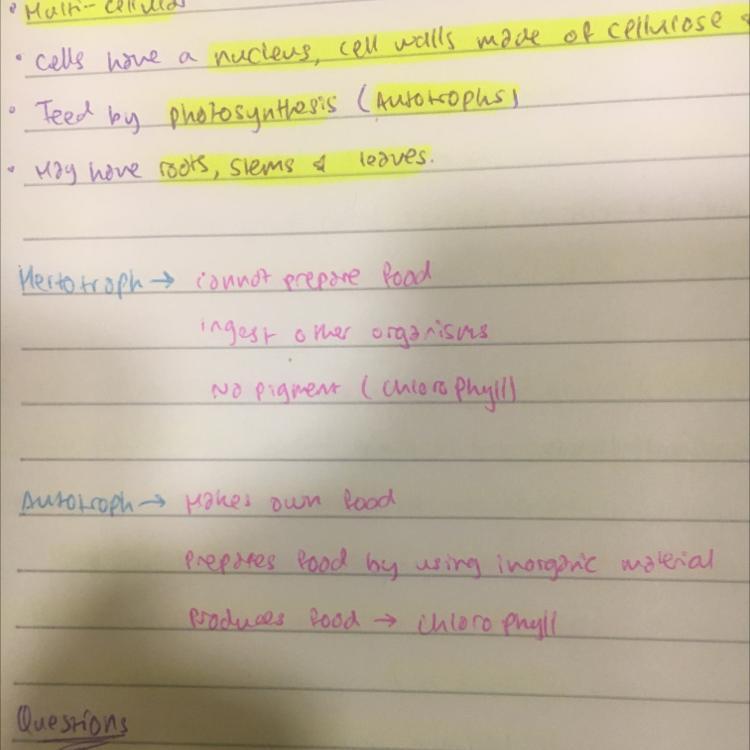 • Multi-cellular
• Cells have a nucleus, cell walls made of cellulose &
• Feed by photosynthesis (Autotrophs)
• May have roots, stems & leaves.
Hertotroph → cannot prepare food
ingest other organisms
No pigment (chlorophyll)
Autotroph → Makes own food
Prepares food by using inorganic material
Produces food → chlorophyll
Questions